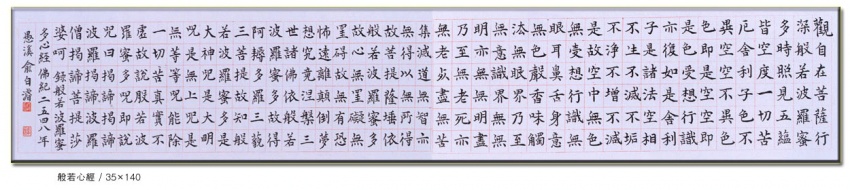 觀自在菩薩行
深般若波羅蜜
多時照見五蘊
皆空度一切苦
厄舍利子色不
異空空不異色
色即是空空即
是色受想行識
亦復如是舍利
子是諸法空相
不生不滅不垢
不淨不增不減
是故空中無色
無受想行識無
眼耳鼻舌身意
無色聲香味觸
法無眼界乃至
無意識界無無
明亦無無明盡
乃至無老死亦
無老死盡無苦
集滅道無智亦
無得以無所得
故菩提薩埵依
般若波羅蜜多
故心無罣碍無
罣碍故無有恐
怖遠離顛倒夢
想究竟涅槃三
世諸佛依般若
波羅蜜多故得
阿耨多羅三藐
三菩提故知般
若波羅蜜多是
大神呪是大明
呪是無上呪是
無等等呪能除
一切苦真實不
虛故說般若波
羅蜜多呪即說
呪曰揭諦揭諦
波羅揭諦波羅
僧揭諦菩提莎
婆呵 錄般若波羅蜜
多心經 佛紀二五四八年
愚溪 俞自濬
般若心經 / 35×140